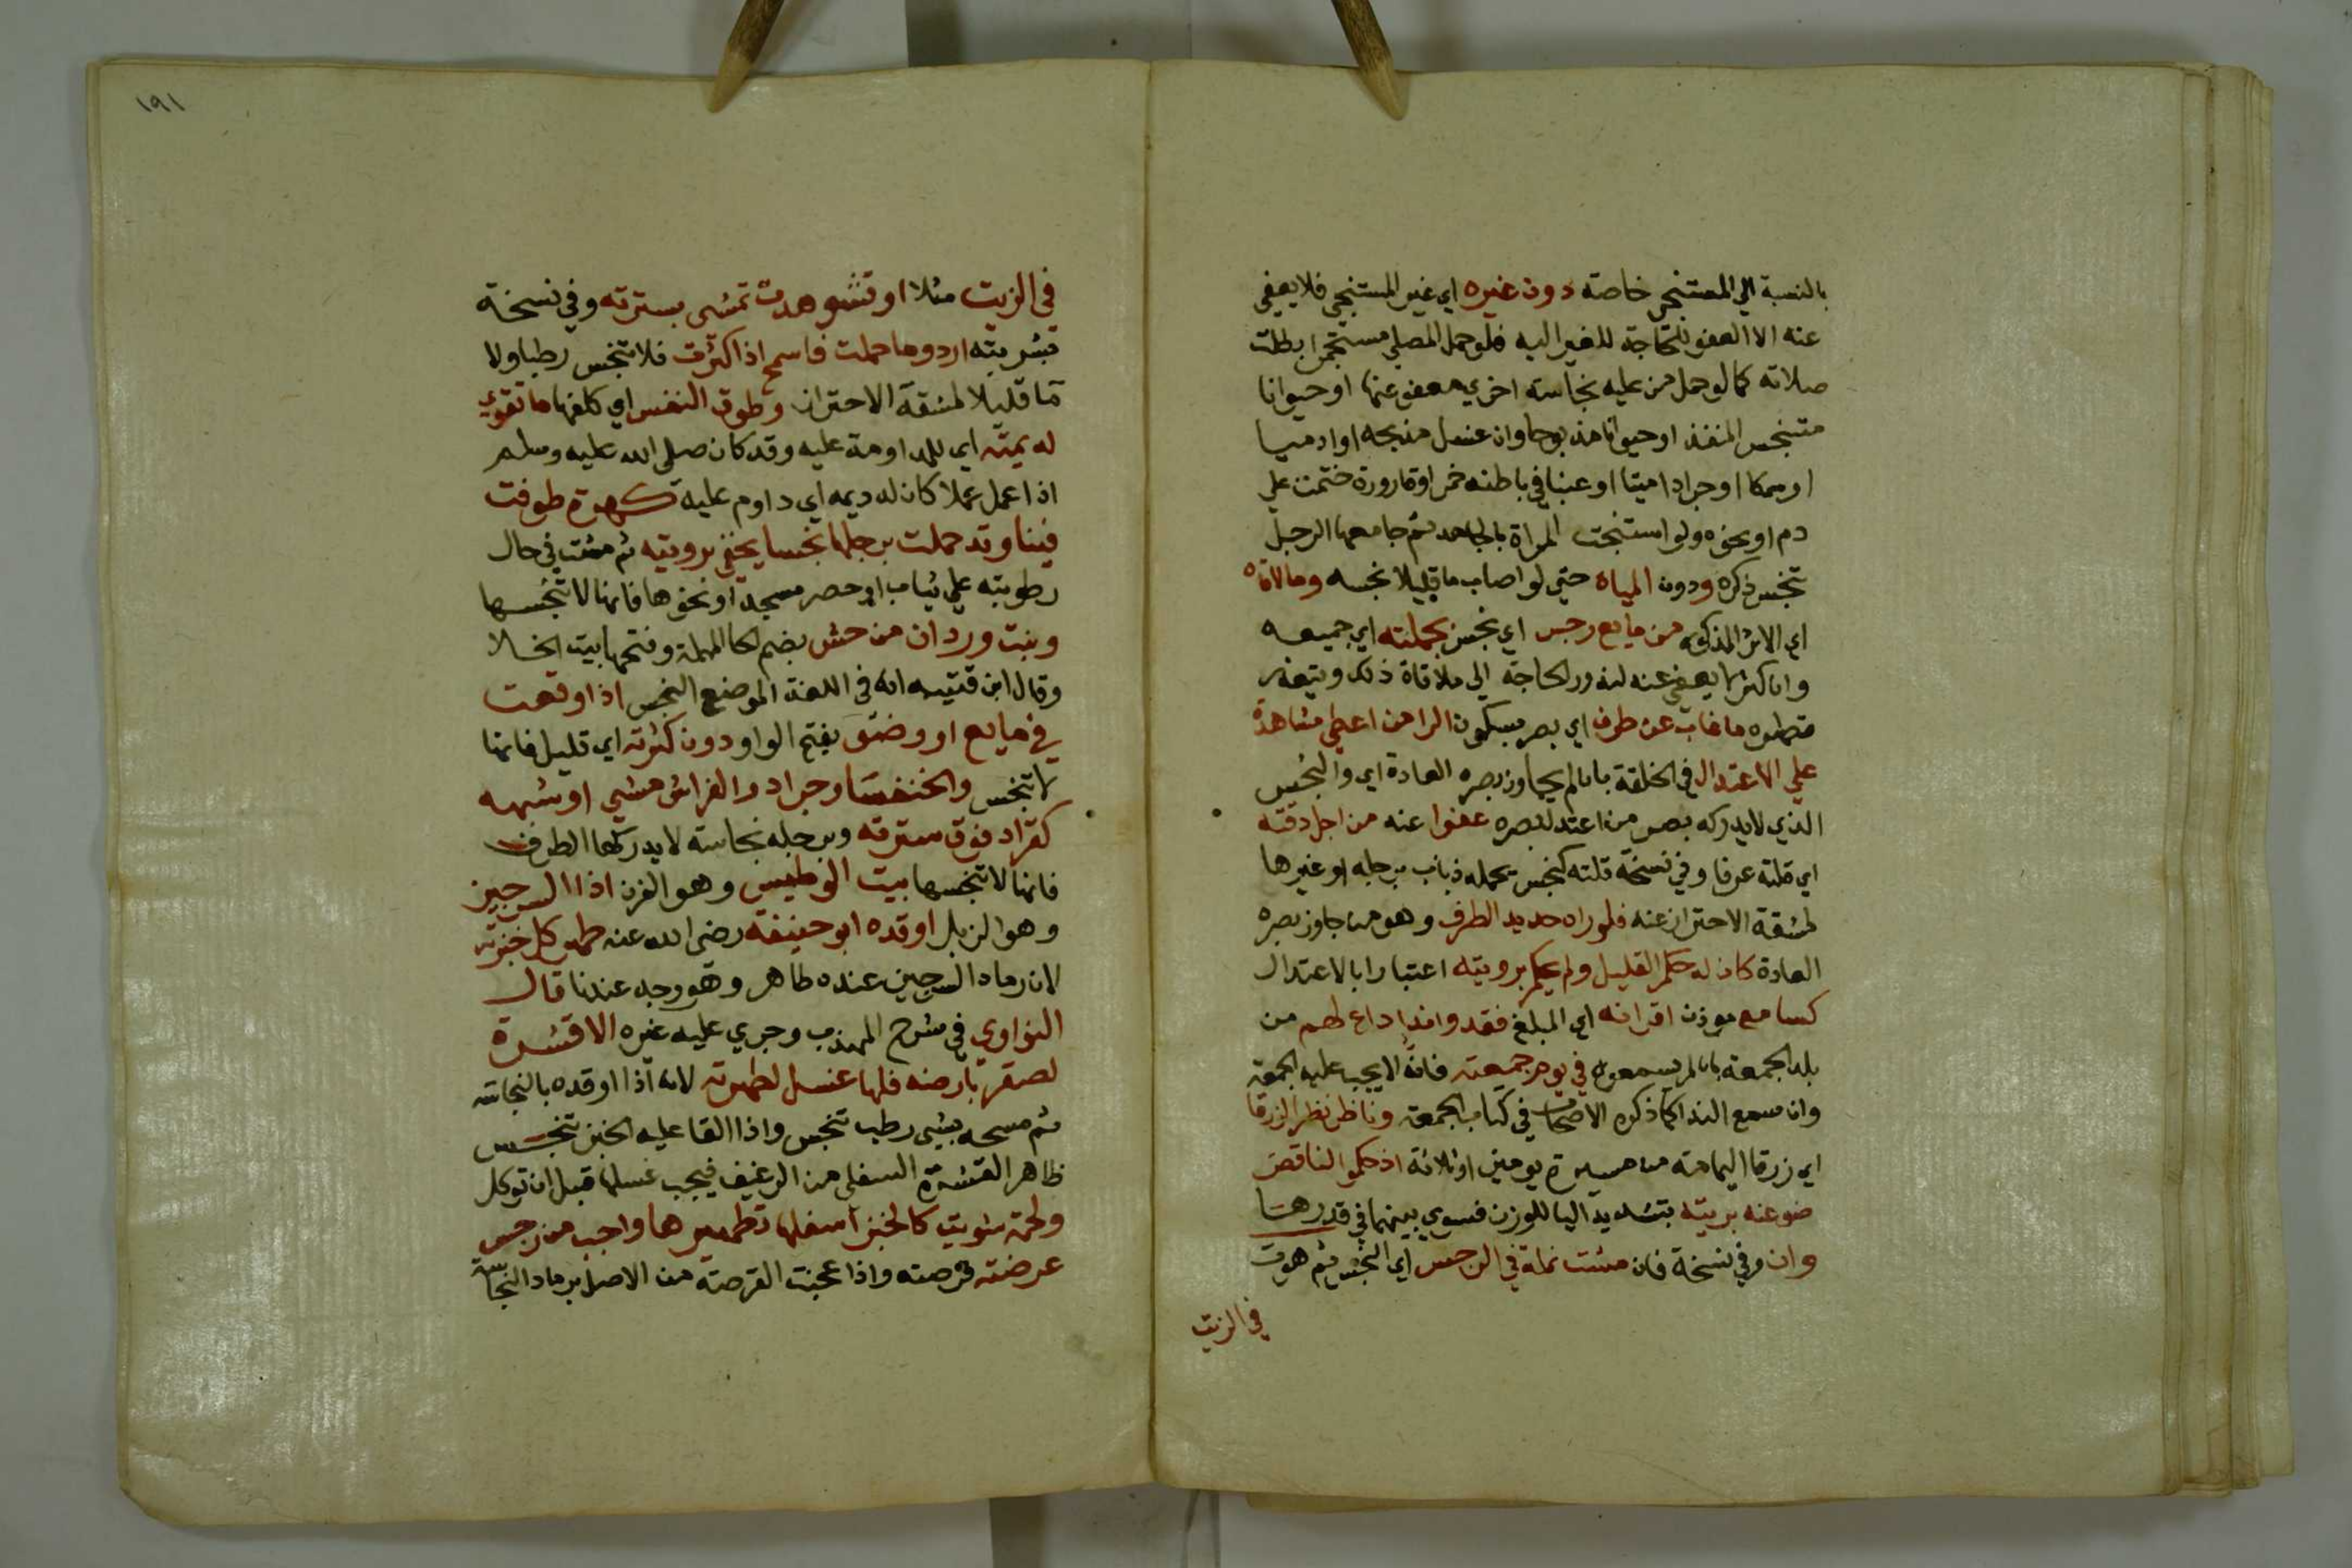 بالنسبة الي المستنجي خاصة دون غيره اي غير المستنجي فلا يعفي
عنه الا العفو للحاجة للغير اليه فلو حمل المصلي مستجمرا بطلت
صلاته كما لو حمل من عليه نجاسة اخري معفو عنها او حيوانا
متنجس المنفذ او حيوانا مذبوحا وان غسل مذبحه او ادميا
او سمكا او جرادا ميتا او عنبا في باطنه خمر او قارورة ختمت علي
دم او نحوه ولو استنجت المراة بالجامد ثم جامعها الرجل
تنجس ذكره ودون المياه حتي لو اصاب ما قليلا نجسه وما لاقاه
اي الاثر المذكور من مايع رجس اي نجس بجملته اي جميعه
وان كثر لا يعفي عنه لندور الحاجة الي ملاقاة ذلك ويتعذر
ما غاب عن طرف اي بصر بسكون الرا من اعطي مشاهدة
علي الاعتدال في الخلقة بان لم يجاوز بصره العادة اي والنجس
الذي لا يدركه بصر من اعتدل بصره عفوا عنه من اجل دقته
اي قلته عرفا وفي نسخة قلته كنجس يحمله ذباب برجله او غيرها
لمشقة الاحتراز عنه فلو راه حديد الطرف وهو من جاوز بصره
العادة كان له حكم القليل ولم يحكم برويته اعتبارا بالاعتدال
كسامع موذن اقرانه اي المبلغ فقدوا ندا داع لهم من
بلد الجمعة بان لم يسمعوه في يوم جمعته فانه لا يجب عليه الجمعة
وان سمع الندا كما ذكره الاصحاب في كتاب الجمعة وناظر نظر الزرقا
اي زرقا اليمامة من مسيرة يومين او ثلاثة اذ حكموا لناقص
ضوعنه بريته بتشديد اليا للوزن فسوي بينهما في قدرها
وان وفي نسخة فان مشت نملة في الرجس اي النجس ثم هوت
في الزيت
١٩١
في الزيت مثلا او شوهدت تمشي بسترته وفي نسخة
بشربته اردو ما حملت فاسمح اذا كثرت فلا تنجس رطبا ولا
ما قليلا لمشقة الاحتراز وطوق النفس اي كلفها ما تقوي
له يمته اي للمداومة عليه وقد كان صلي الله عليه وسلم
اذا عمل عملا كان له ديمه اي داوم عليه كهرة طوفت
فينا وقد حملت برجلها نجسا يخفي برويته ثم مشت في حال
رطوبته علي ثياب او حصر مسجد او نحوها فانها لا تنجسها
وبنت وردان من حش بضم الحا المهملة وفتحها بيت الخلا
وقال ابن قتيبه انه في اللغة الموضع النجس اذا وقعت
في مايع او وضو بفتح الواو دون كثرته اي قليل فانها
لا تنجس والخنفسا وجراد والفراش مشي او شبهه
كقراد فوق سترته وبرجله نجاسة لا يدركها الطرف
فانها لا تنجسها بيت الوطيس وهو الفرن اذا السرجين
وهو الزبل اوقده ابو حنيفة رضي الله عنه طهر كل خبزته
لان رماد السرجين عنده طاهر وهو وجه عندنا قال
النواوي في شرح المهذب وجري عليه غيره الا قشرة
لصقر بارضه فلها غسل لطهرته لانه اذا اوقده بالنجاسة
ثم مسحه بشيي رطب تنجس واذا القا عليه الخبز تنجس
ظاهر القشرة السفلي من الرغيف فيجب غسلها قبل ان توكل
ولحمة شويت كالخبز اسفلها تطهيرها واجب من رجس
عرضته قرصته واذا عجنت القرصة من الاصل برماد النجاسة